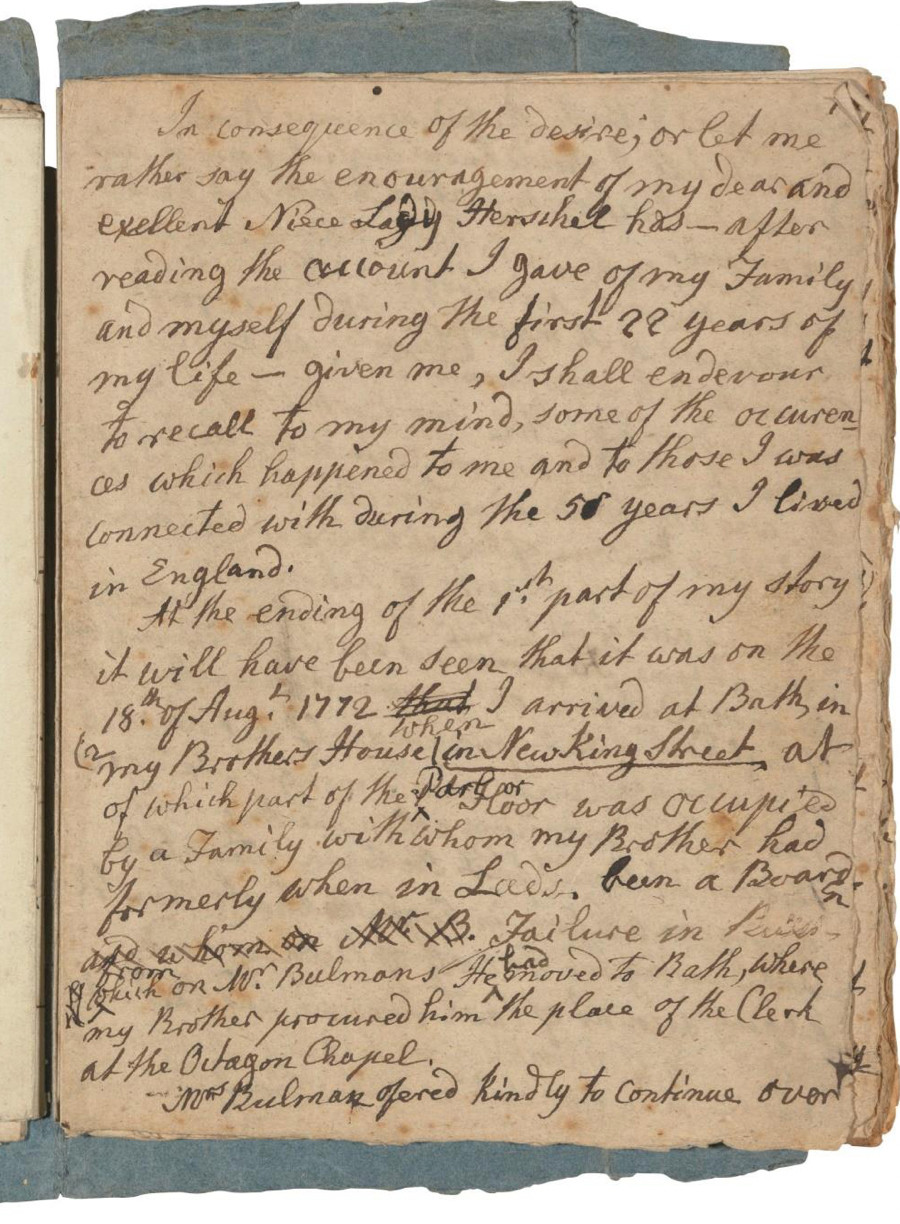 In consequence of the desire; or let me
rather say the enouragement of my dear and
exellent Niece Lady Herschel has — after
reading the account I gave of my Family
and myself during the first 22 years of
my life — given me, I shall endevour
to recall to my mind, some of the occuren
ces which happened to me and to those I was
connected with during the 50 years I lived
in England.
At the ending of the 1st. part of my story
it will have been seen that it was on the
18th. of Augt. 1772 that I arrived at Bath, in
when
(2 my Brothers House (in New King Street, at
of which part of the Parlor Floor was occupied
by a Family with whom my Brother had
formerly when in Leeds. been a Board.
and whom on Mr. B. Failure in
from which on Mr. Bulmans He had moved to Bath, where
my Brother procured him the place of the Clerk
at the Octagon Chapel.
Mrs Bulman ofered kindly to continue over